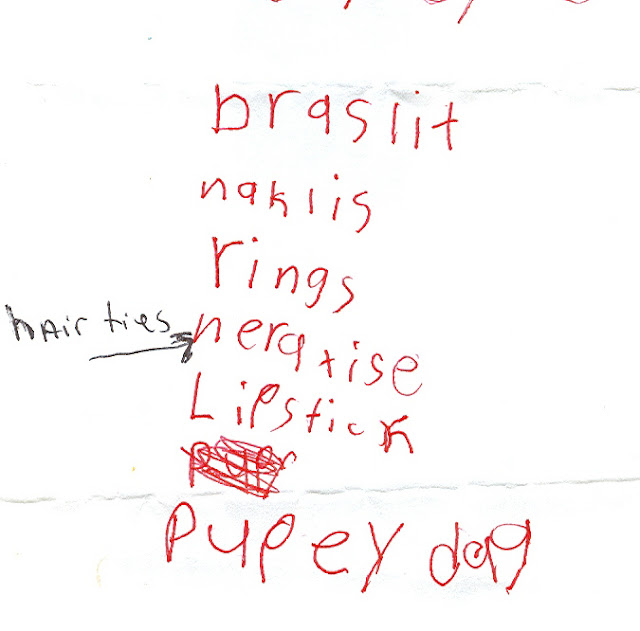 braslit
naklis
rings
hair ties neratise
Lipstick
pupey dag